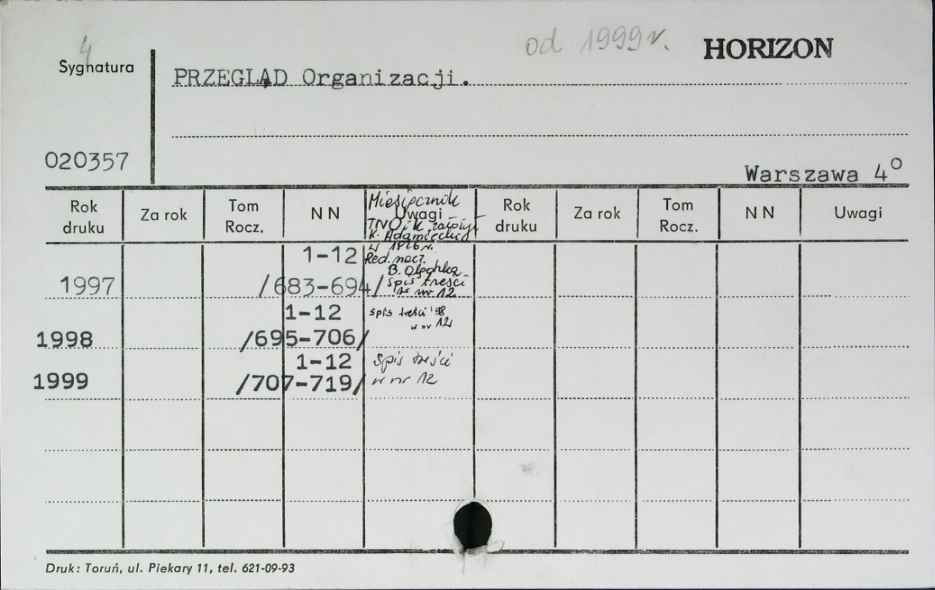 4
od 1999 r.
HORIZON
Sygnatura
PRZEGLĄD Organizacji.
020357
Warszawa 4°
Rok druku
Za rok
Tom Rocz.
N N
Uwagi
Rok druku
Za rok
Tom Rocz.
N N
Uwagi
Miesięcznik
TNOiK założył
K. Adamiecki
w 1926 r.
Red. nacz.
1-12
1997
/683-694/
spis treści
w nr 12
1-12
spis treści '98
w nr 12
1998
/695-706/
1-12
spis treści
1999
/707-719/
w nr 12
Druk: Toruń, ul. Piekary 11, tel. 621-09-93